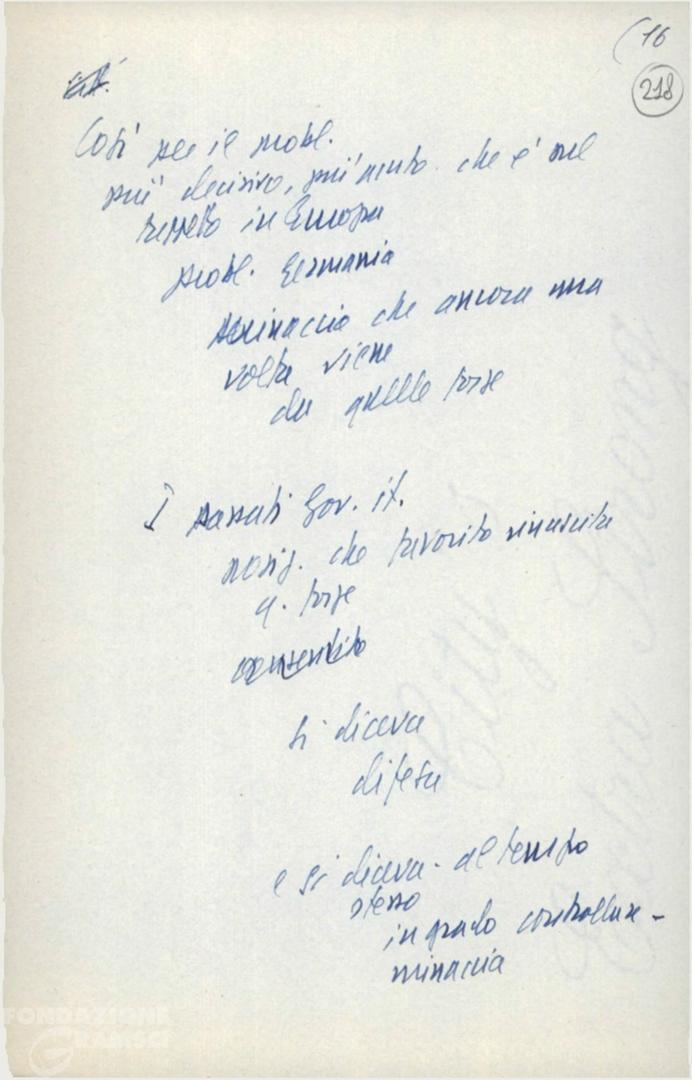 (16
218
Così per il probl.
più decisivo, più acuto che è sul
tappeto in Europa
probl. Germania
minaccia che ancora una
volta viene
da quelle forze
I passati Gov. it.
che favorito rinascita
q. forze
consentito
si diceva
difesa
e si diceva - al tempo
stesso
in grado controllare -
minaccia
FONDAZIONE
GRAMSCI